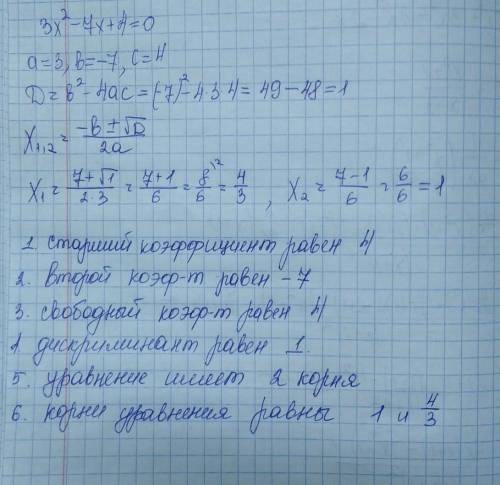 3x² - 7x + 4 = 0
a = 3, b = -7, c = 4
D = b² - 4ac = (-7)² - 4·3·4 = 49 - 48 = 1
x₁,₂ = (-b ± √D) / 2a
x₁ = (7 + √1) / (2·3) = (7 + 1) / 6 = 8/6 |² = 4/3 , x₂ = (7 - 1) / 6 = 6/6 = 1
1. старший коэффициент равен 4
2. второй коэф-т равен -7
3. свободный коэф-т равен 4
4. дискриминант равен 1.
5. уравнение имеет 2 корня
6. корни уравнения равны 1 и 4/3